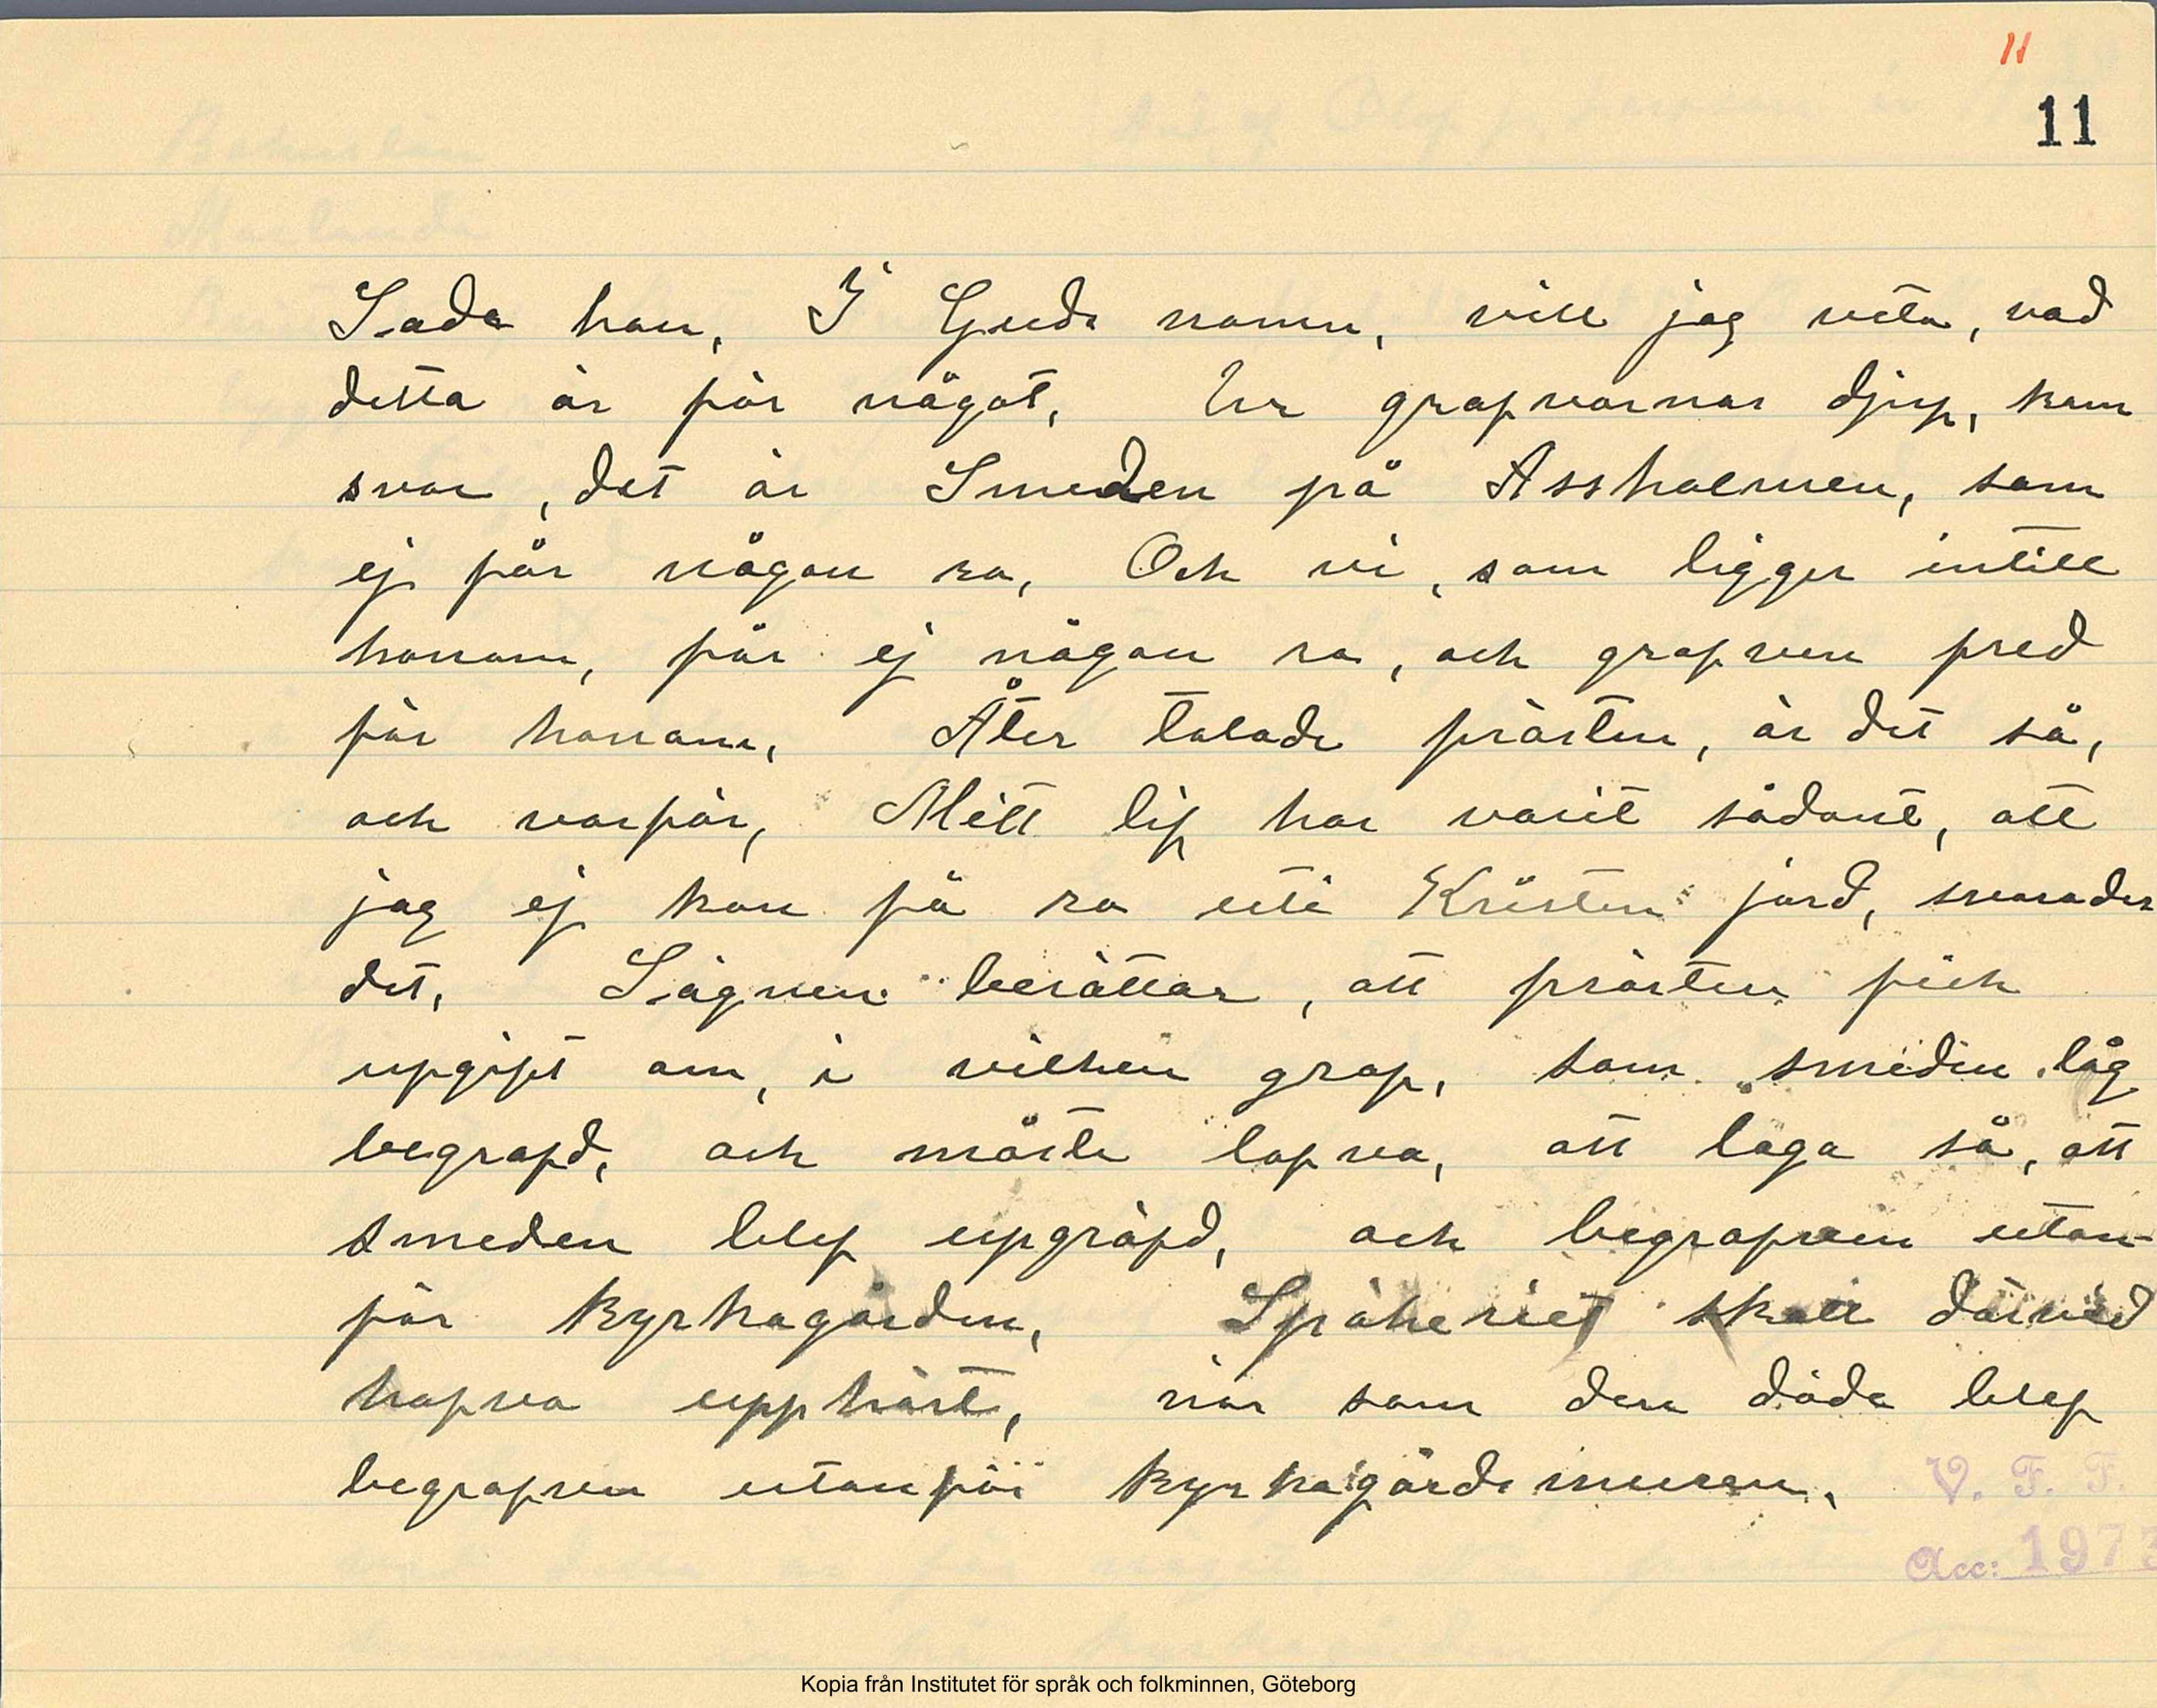 11
11
Sade han, I Guds namn, vill jag veta, vad
detta är för något, Ur grafvarnas djup, kom
svar, det är Smeden på Assholmen, som
ej får någon ro, Och vi, som ligger intill
honom, får ej någon ro, och grafven fred
för honom, Åter talade prästen, är det så,
och varför, Mitt lif har varit sådant, att
jag ej kan få ro uti Kristen jord, svarades
det, Sägnen berättar, att prästen fick
upgift om, i vilken graf, som smeden låg
begrafd, och måste lofva, att laga så, att
smeden blef upgräfd, och begrafven utan-
för kyrkagården, Spökeriet skall därvid
hafva upphört, när som den döde blef
begrafven utanför kyrkagårds muren,
V. F. F.
Acc: 1973
Kopia från Institutet för språk och folkminnen, Göteborg